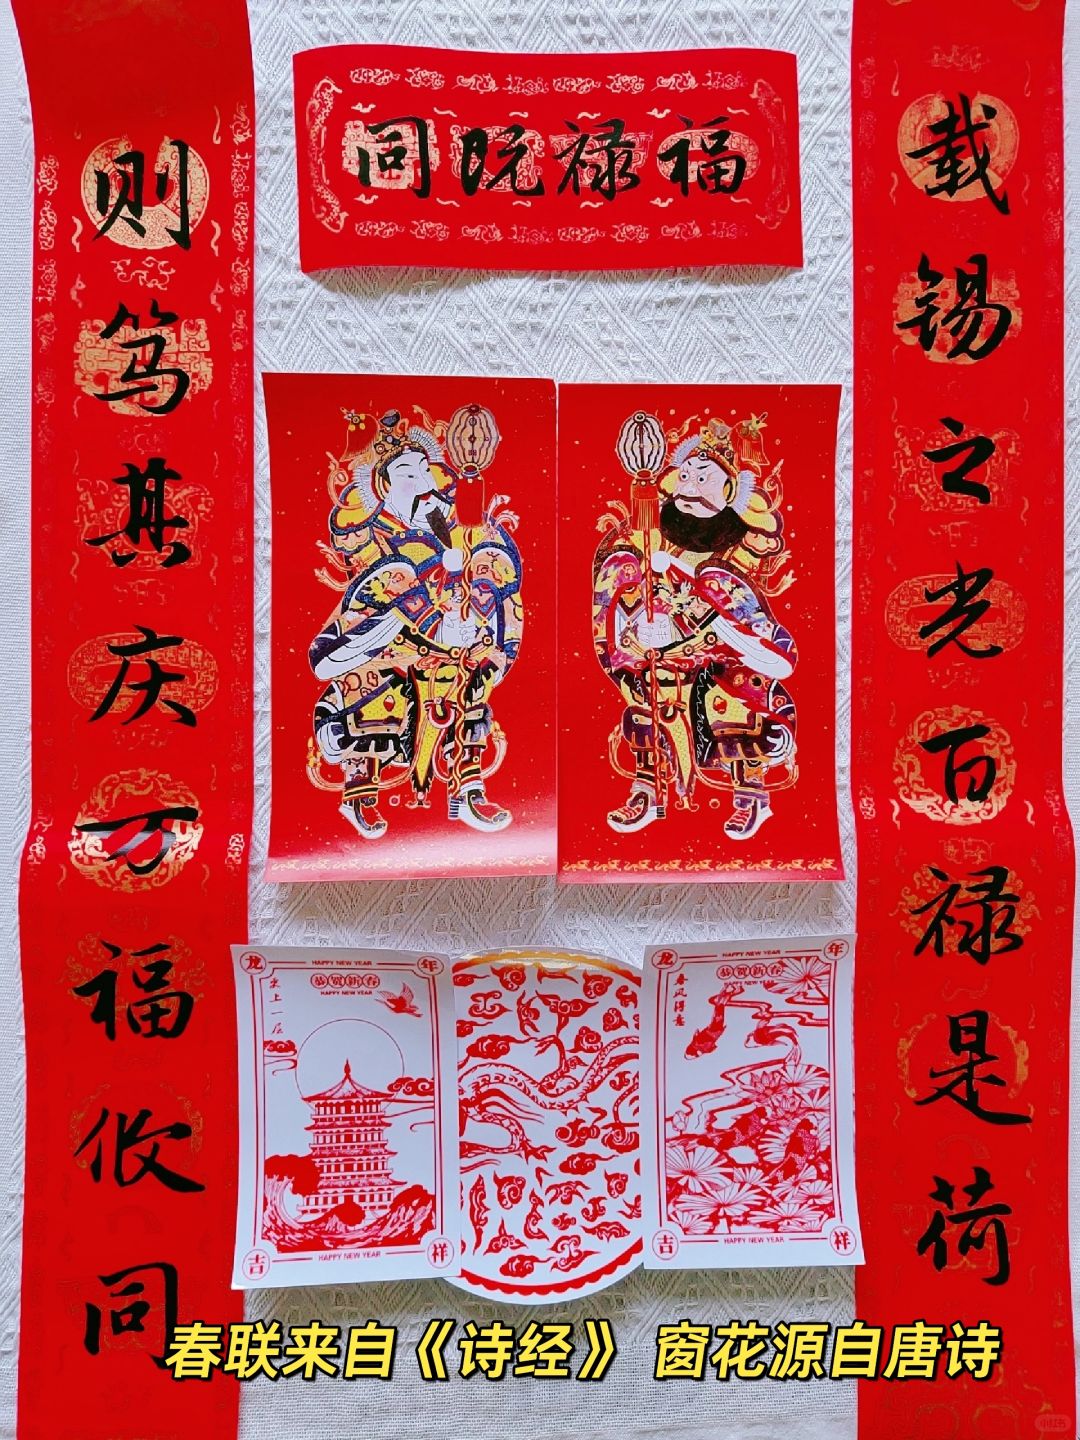 福禄既同
载锡之光百禄是荷
则笃其庆万福攸同
龙年
HAPPY NEW YEAR
恭贺新春
HAPPY NEW YEAR
更上一层
HAPPY NEW YEAR
吉祥
龙年
HAPPY NEW YEAR
恭贺新春
HAPPY NEW YEAR
春风得意
HAPPY NEW YEAR
吉祥
春联来自《诗经》 窗花源自唐诗
小红书